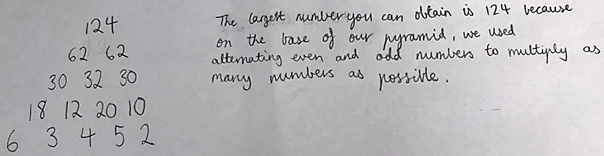 124
62 62
30 32 30
18 12 20 10
6 3 4 5 2
The largest number you can obtain is 124 because
on the base of our pyramid, we used
alternating even and odd numbers to multiply as
many numbers as possible.